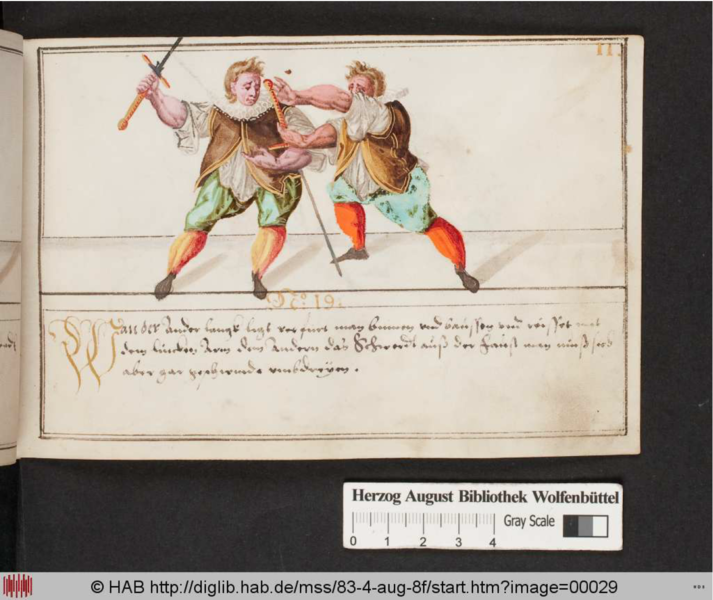 11.
No 19.
Wan der Ander langk ligt verfurt man binnen und baussen und reisset mit
dem lincken Arm dem Andern das Schwerdt auß der faust man muß sich
aber gar geschwinde umbdreyen.
Herzog August Bibliothek Wolfenbüttel
Gray Scale
0 1 2 3 4
© HAB http://diglib.hab.de/mss/83-4-aug-8f/start.htm?image=00029